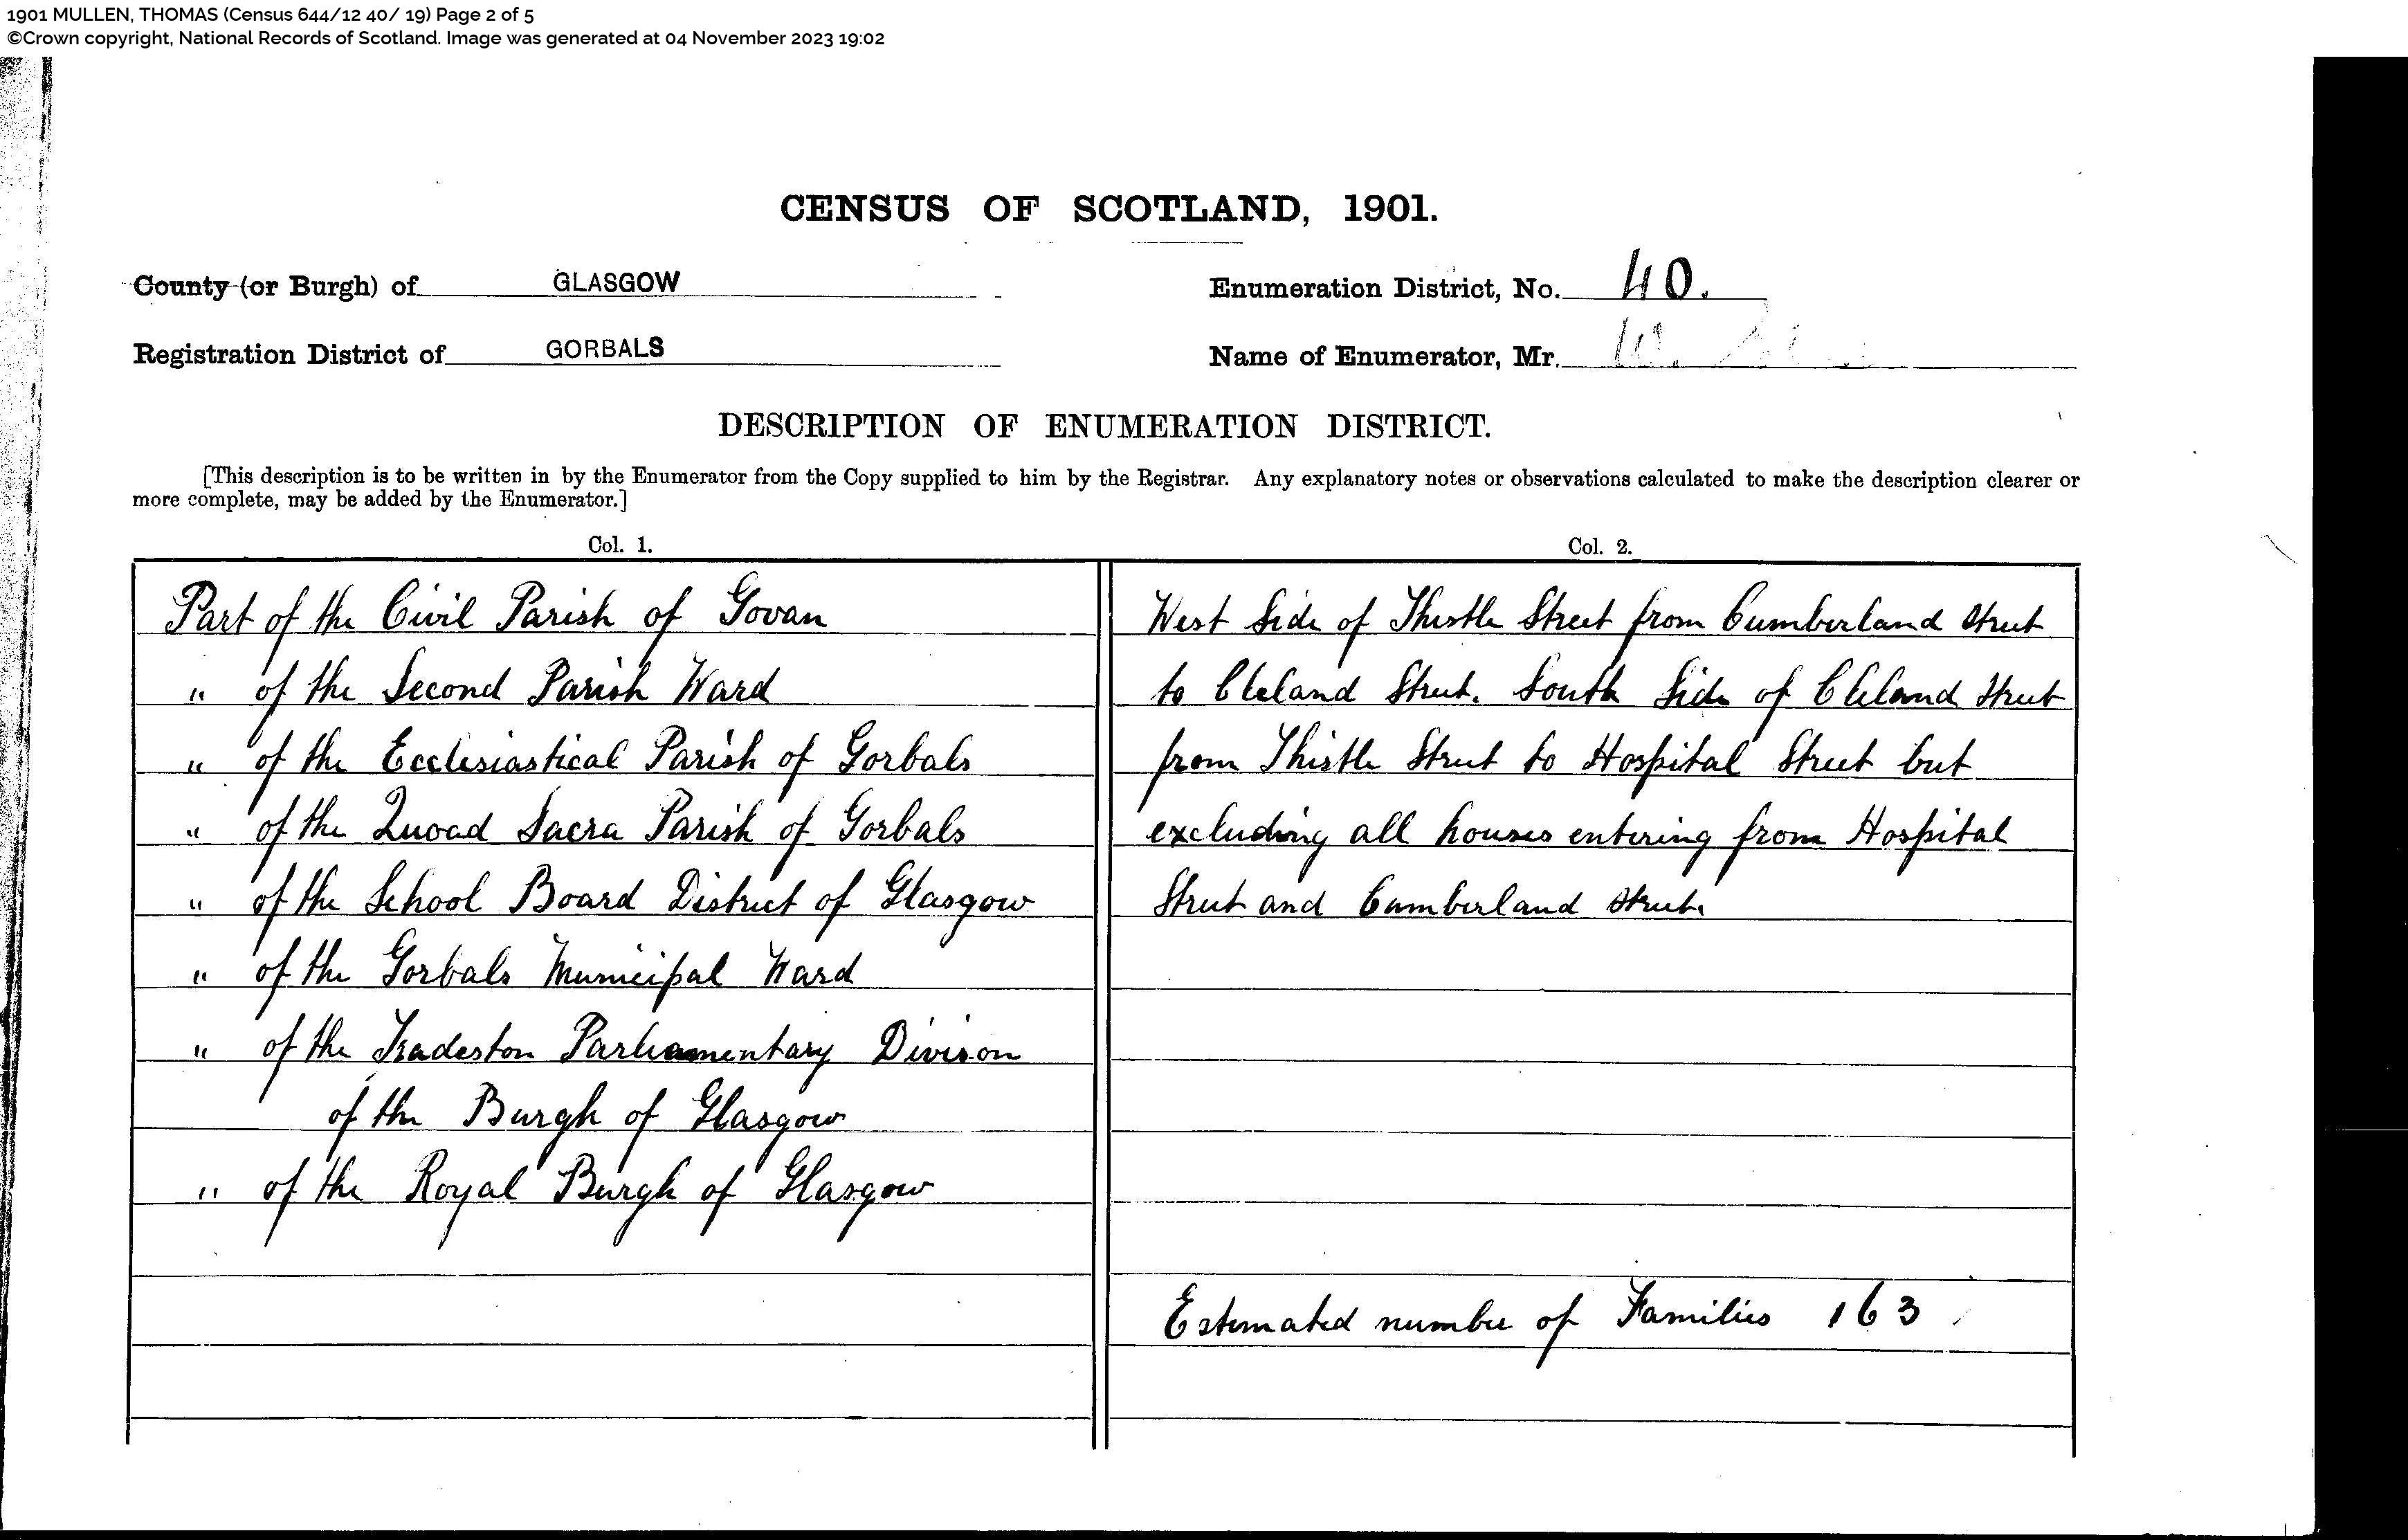 1901 MULLEN, THOMAS (Census 644/12 40/ 19) Page 2 of 5
©Crown copyright, National Records of Scotland. Image was generated at 04 November 2023 19:02
CENSUS OF SCOTLAND, 1901.
County (or Burgh) of GLASGOW
Enumeration District, No. 40.
Registration District of GORBALS
Name of Enumerator, Mr. W.
DESCRIPTION OF ENUMERATION DISTRICT.
[This description is to be written in by the Enumerator from the Copy supplied to him by the Registrar. Any explanatory notes or observations calculated to make the description clearer or
more complete, may be added by the Enumerator.]
Col. 1.
Part of the Civil Parish of Govan
" of the Second Parish Ward
" of the Ecclesiastical Parish of Gorbals
" of the Quoad Sacra Parish of Gorbals
" of the School Board District of Glasgow
" of the Gorbals Municipal Ward
" of the Tradeston Parliamentary Division
of the Burgh of Glasgow
" of the Royal Burgh of Glasgow
Col. 2.
West Side of Thistle Street from Cumberland Street
to Cleland Street. South Side of Cleland Street
from Thistle Street to Hospital Street but
excluding all houses entering from Hospital
Street and Cumberland Street.
Estimated number of Families 163